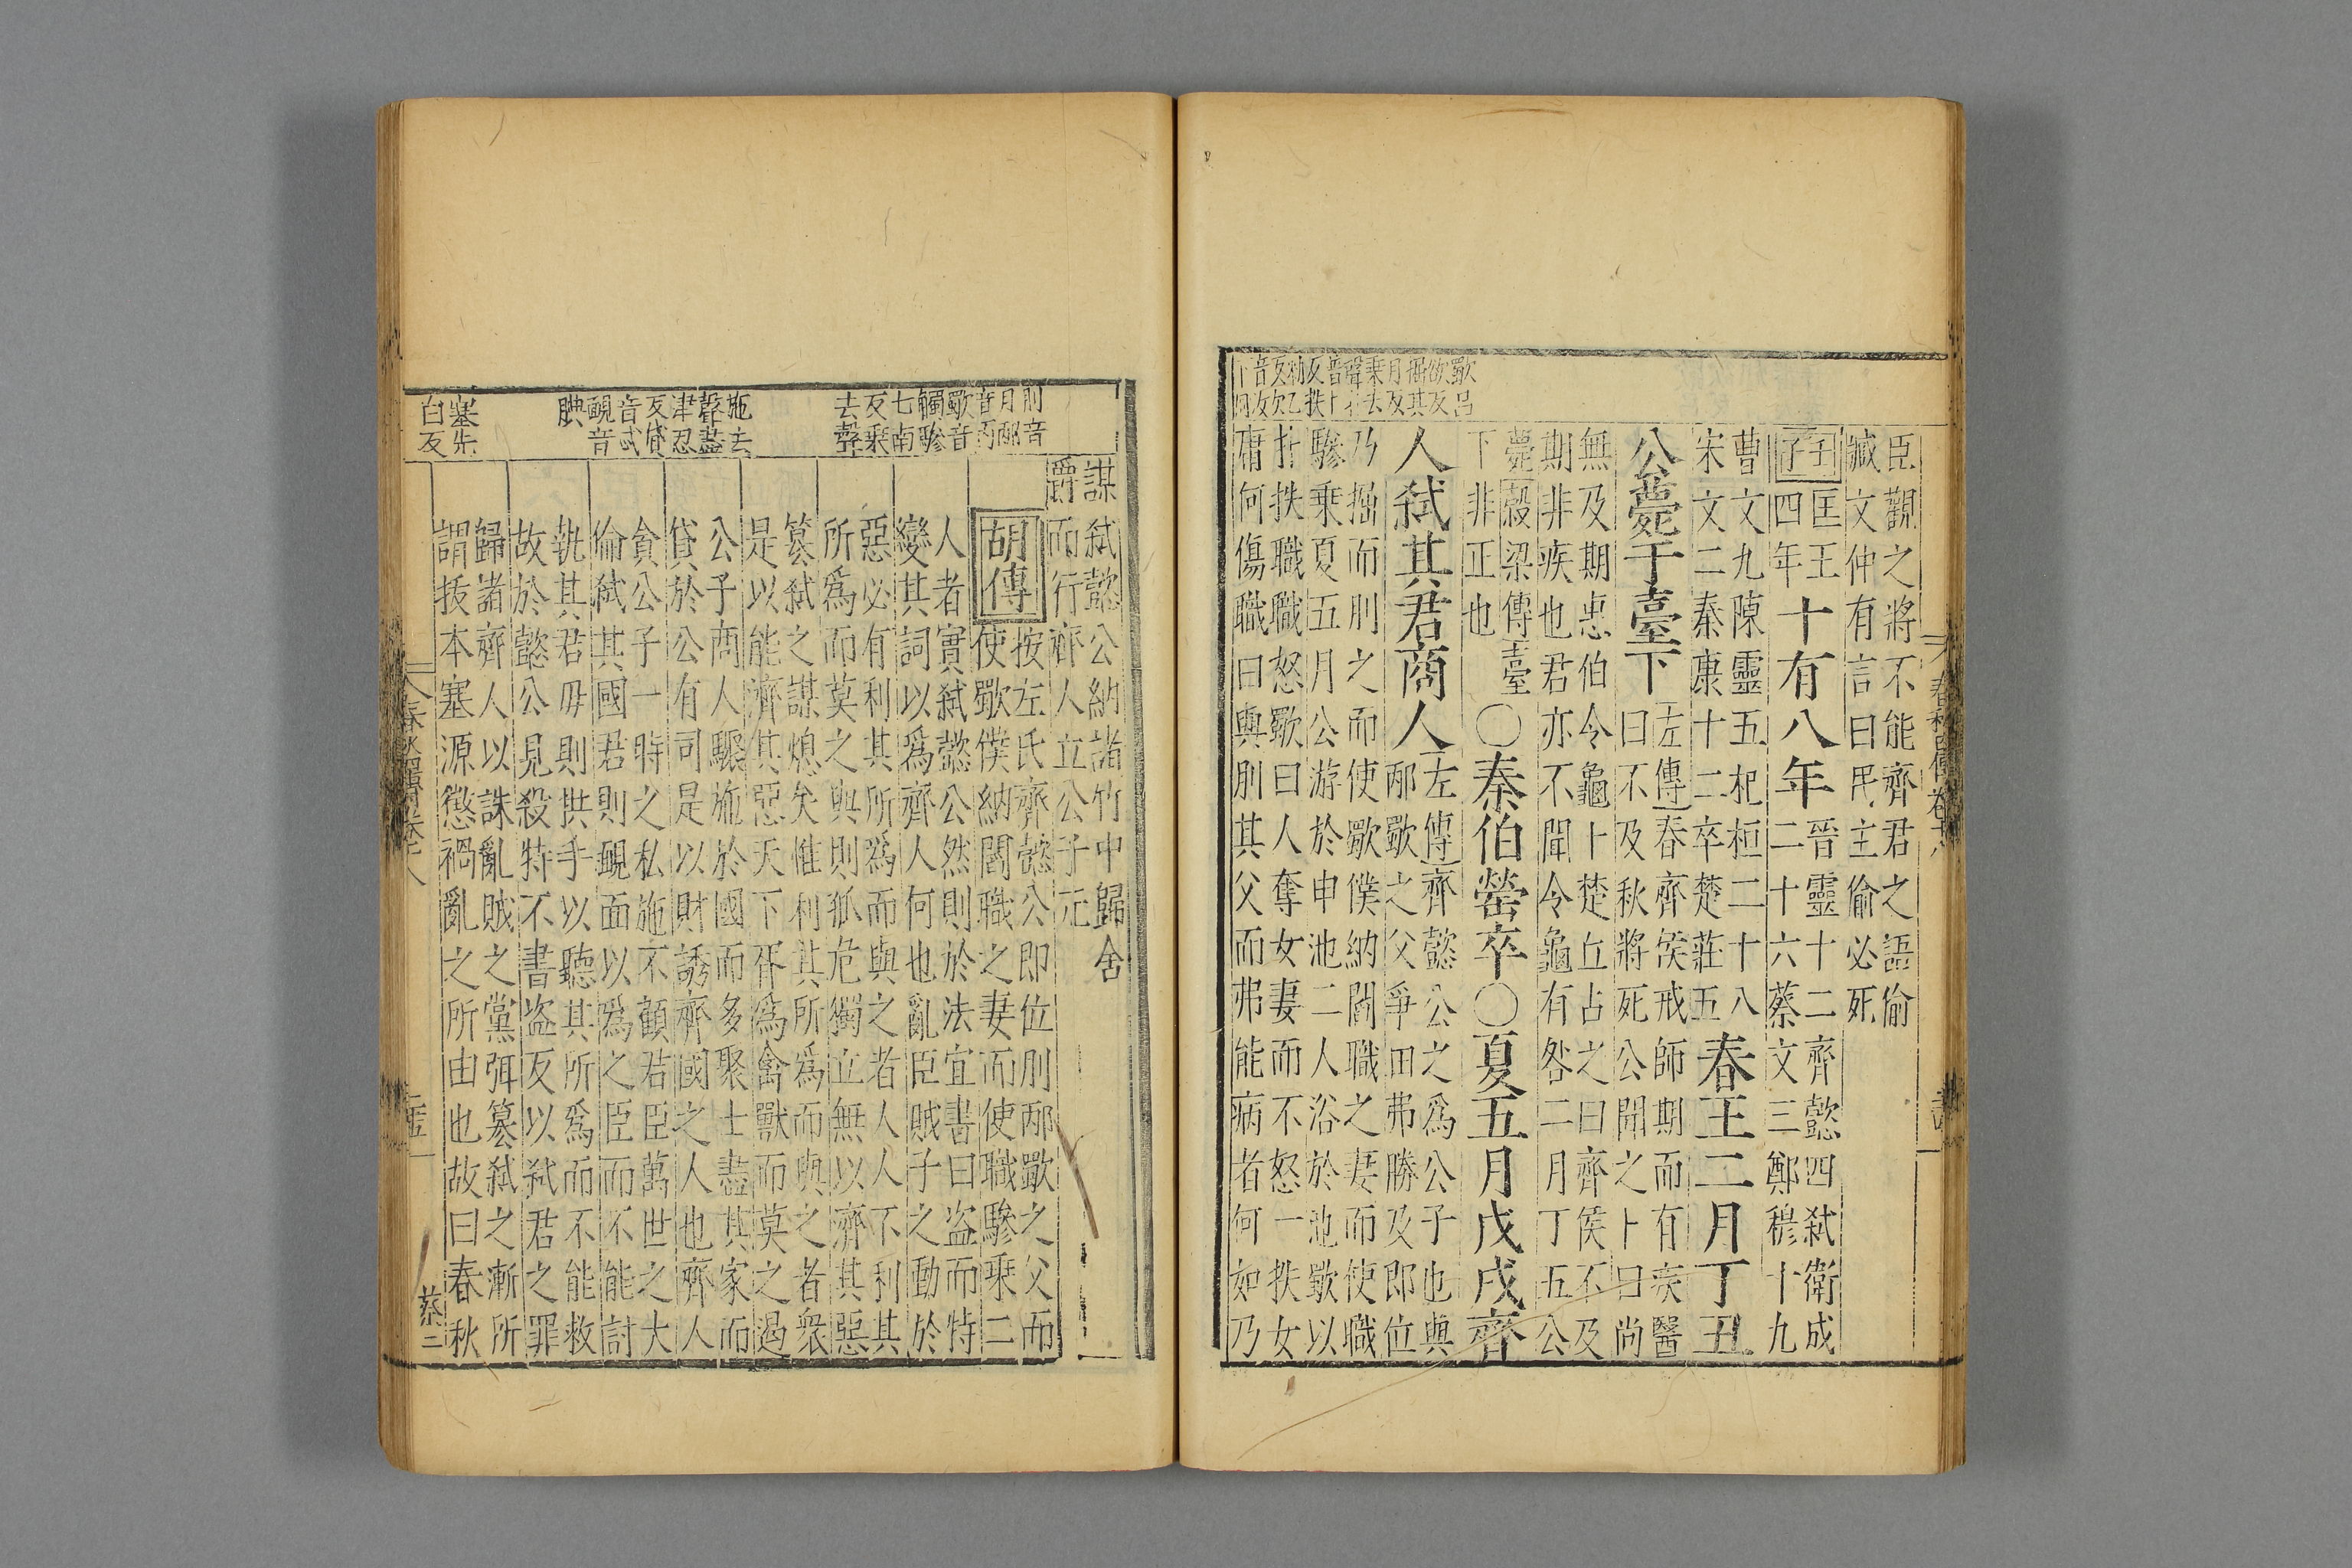 歜昌
欲反
掘其
月反
乗去
聲
普卜
反抶
勑乙
反
臣觀之將不能齊君之語偷
臧文仲有言曰民主偷必死
壬匡王十有八年晉靈十二齊懿四弒衛成
子四年二十六蔡文三鄭穆十九
曹文九陳靈五杞桓二十八
宋文二秦康十二卒楚莊五
春王二月丁丑
公薨于臺下
左傳春齊侯戒師期而有疾醫
曰不及秋將死公聞之卜曰尚
無及期惠伯令龜卜楚丘占之曰齊侯不及
期非疾也君亦不聞令龜有咎二月丁丑公
薨穀梁傳臺
下非正也
○秦伯罃卒○夏五月戊戌齊
人弒其君商人
左傳齊懿公之爲公子也與
邴歜之父爭田弗勝及即位
乃掘而刖之而使歜僕納閻職之妻而使職
驂乗夏五月公游於申池二人浴於池歜以
扑抶職職怒歜曰人奪女妻而不怒一抶女
庸何傷職曰與刖其父而弗能病者何如乃
刖音
月邴
音丙
歜音
觸驂
七南
反乗
去聲
施去
聲盡
津忍
反貸
音忒
覥音
腆
塞先
白反
謀弒懿公納諸竹中歸舍
爵而行齊人立公子元
胡傳
按左氏齊懿公即位刖邴歜之父而
使歜僕納閻職之妻而使職驂乗二
人者實弒懿公然則於法宜書曰盜而特
變其詞以爲齊人何也亂臣賊子之動於
惡必有利其所爲而與之者人人不利其
所爲而莫之與則孤危獨立無以濟其惡
篡弒之謀熄矣惟利其所爲而與之者衆
是以能濟其惡天下胥爲禽獸而莫之遏
公子商人驟施於國而多聚士盡其家而
貸於公有司是以財誘齊國之人也齊人
貪公子一時之私施不顧君臣萬世之大
倫弒其國君則覥面以爲之臣而不能討
執其君毋則拱手以聽其所爲而不能救
故於懿公見殺特不書盜反以弒君之罪
歸諸齊人以誅亂賊之黨弭篡弒之漸所
謂拔本塞源懲禍亂之所由也故曰春秋